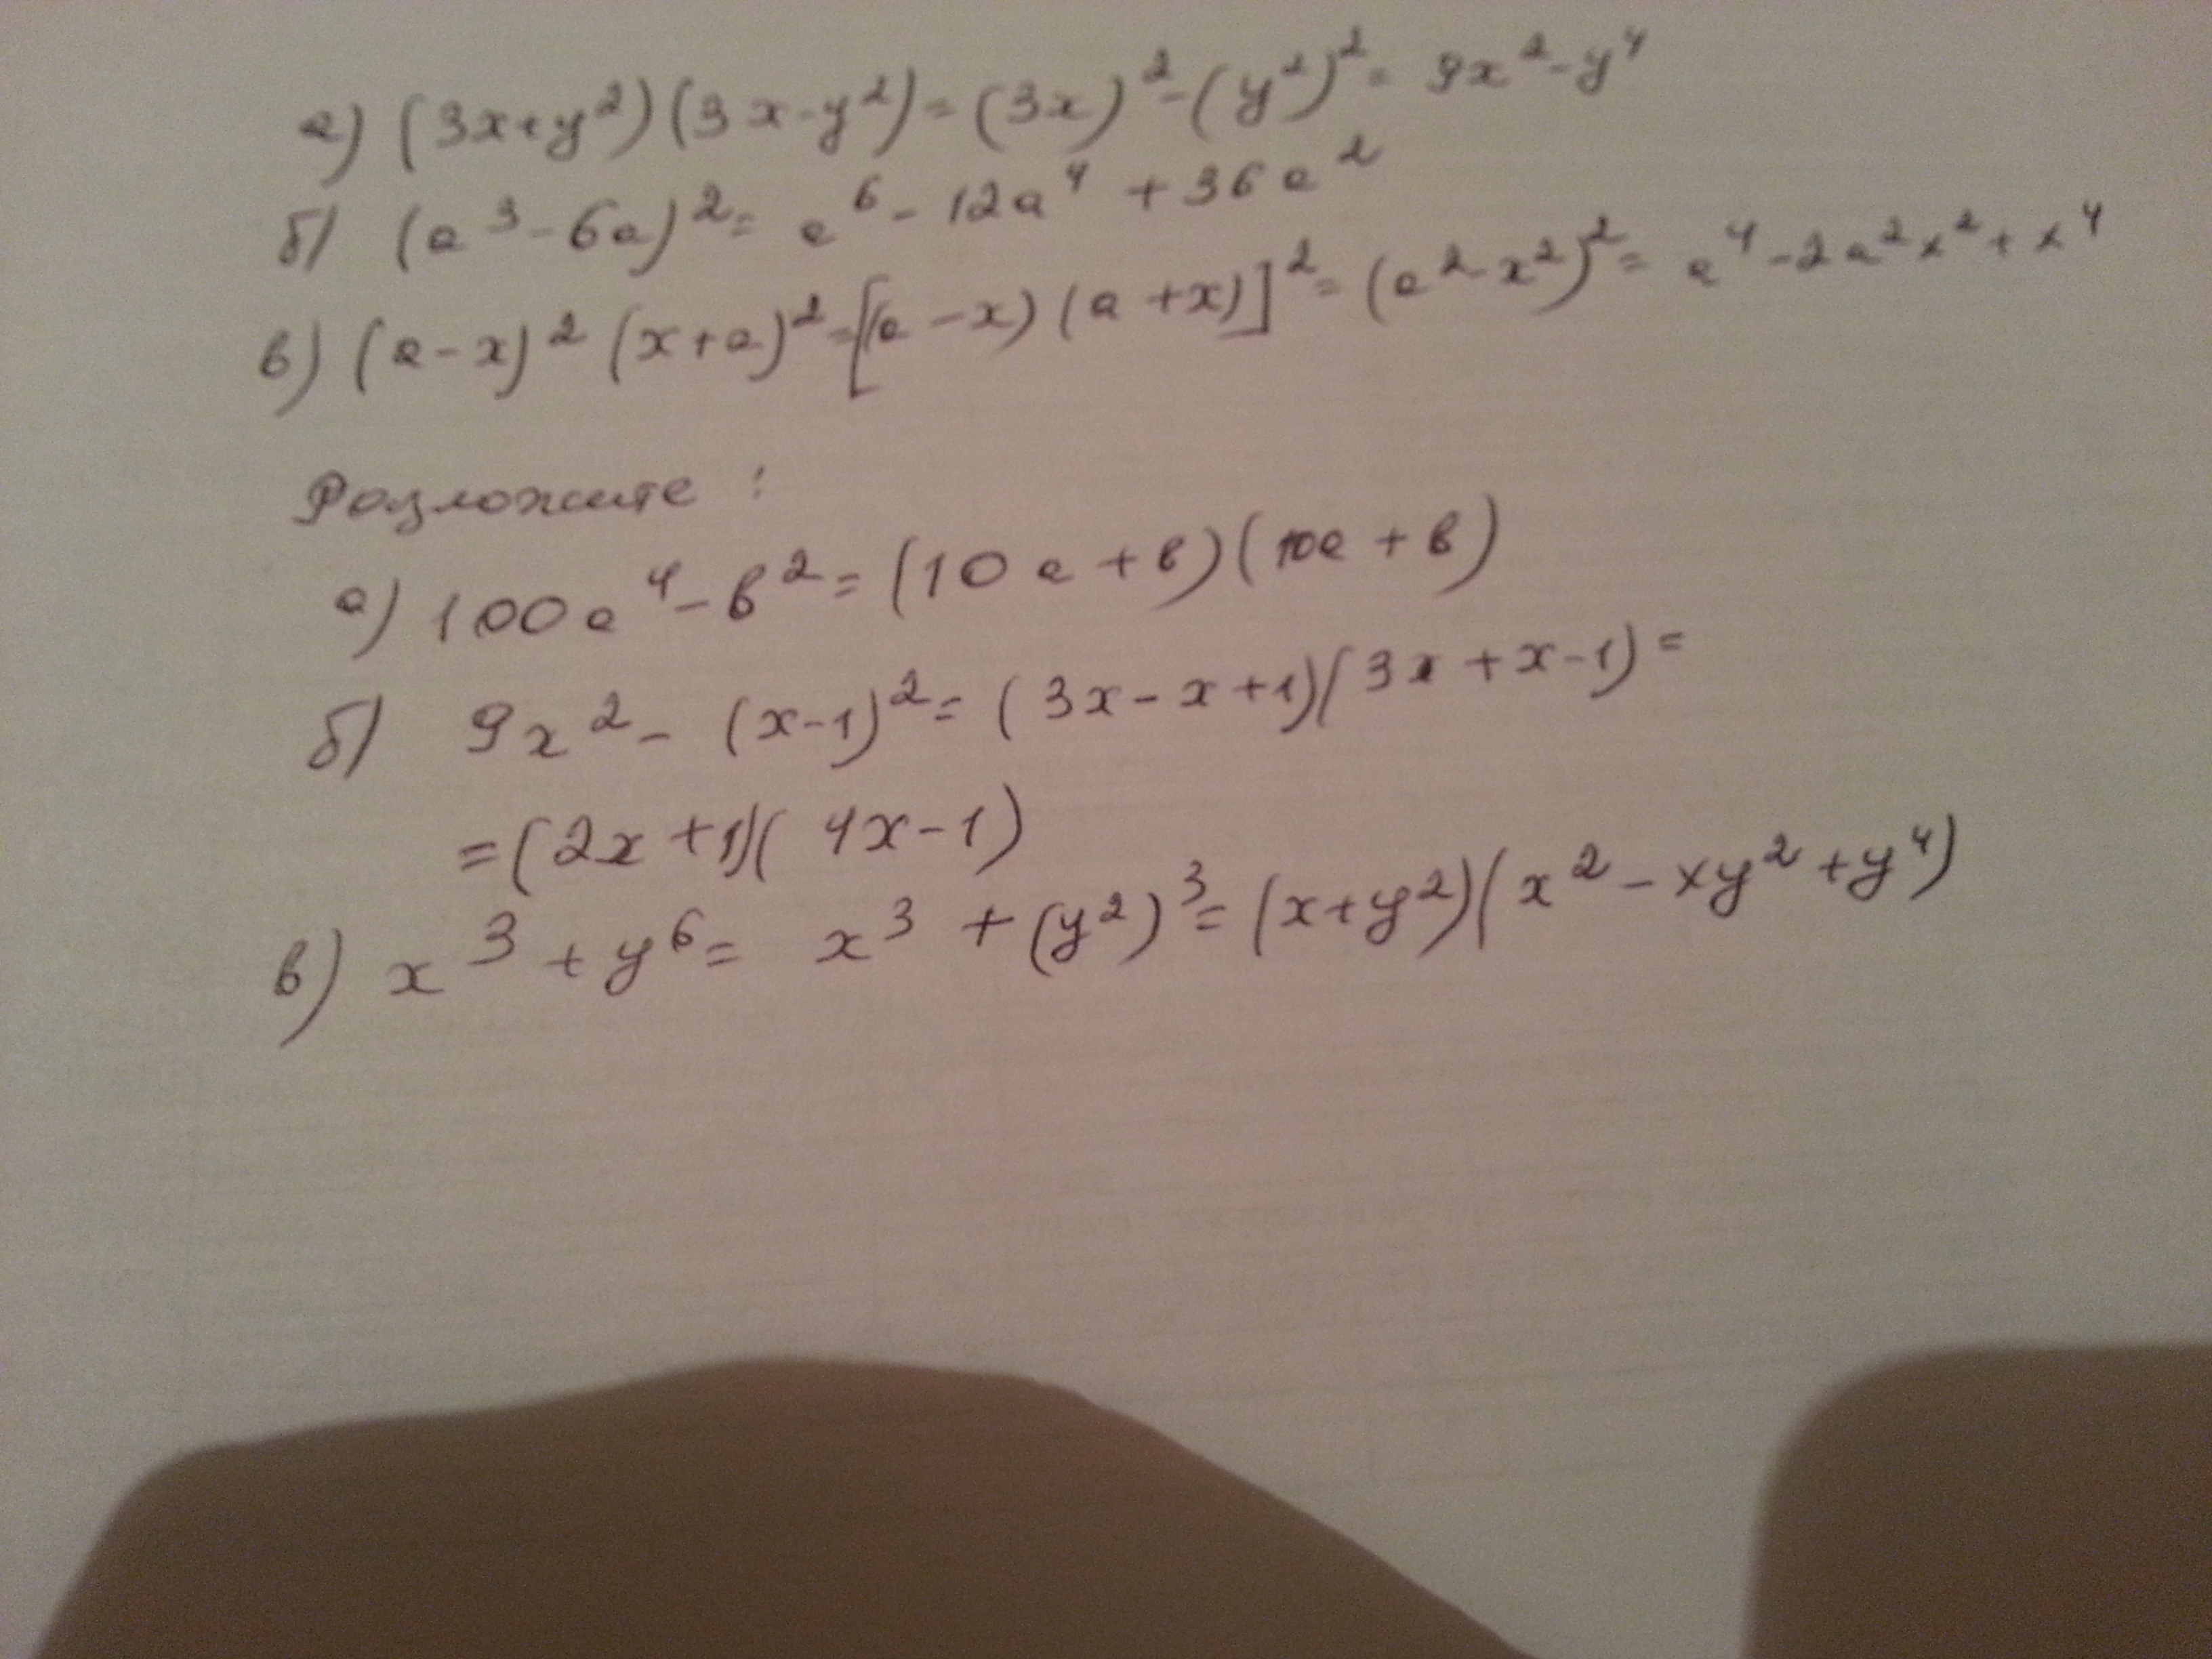 а) (3x+y²)(3x-y²)=(3x)²-(y²)²= 9x²-y⁴
б) (a³-6a)²= a⁶- 12a⁴ +36a²
в) (a-x)² (x+a)²=[(a-x)(a+x)]²=(a²-x²)²= a⁴-2a²x²+x⁴
Розложите :
а) 100a⁴-в²=(10a+в)(10a+в)
б) 9x²- (x-1)²= (3x-x+1)(3x+x-1)=
=(2x+1)(4x-1)
в) x³+y⁶= x³+(y²)³=(x+y²)(x²-xy²+y⁴)